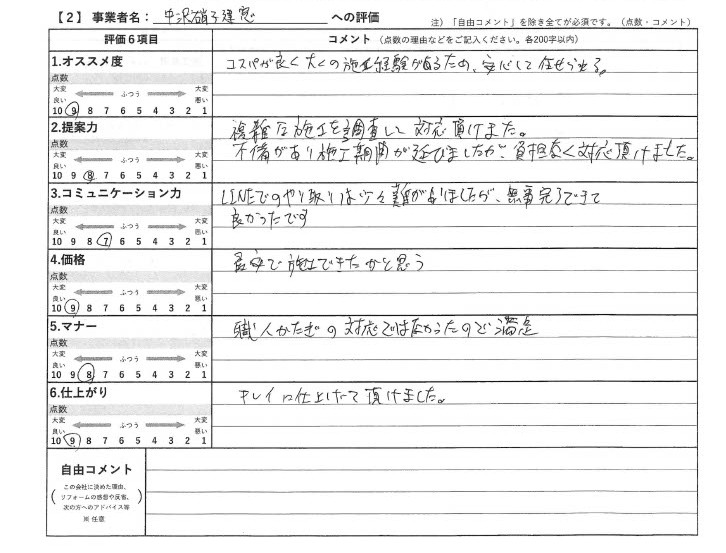 【2】事業者名： 中沢硝子建窓 への評価
注）「自由コメント」を除き全てが必須です。（点数・コメント）
評価6項目
コメント（点数の理由などをご記入ください。各200字以内）
1.オススメ度
点数
大変良い ふつう 大変悪い
10 9 8 7 6 5 4 3 2 1
コスパが良く大くの施工経験があるため、安心して任せられる。
2.提案力
点数
大変良い ふつう 大変悪い
10 9 8 7 6 5 4 3 2 1
複雑な施工を調査して対応頂けました。
不備があり施工期間が延びましたが、負担なく対応頂けました。
3.コミュニケーション力
点数
大変良い ふつう 大変悪い
10 9 8 7 6 5 4 3 2 1
LINEでのやり取りは少々難がありましたが、無事完了できて
良かったです
4.価格
点数
大変良い ふつう 大変悪い
10 9 8 7 6 5 4 3 2 1
最安で施工できたかと思う
5.マナー
点数
大変良い ふつう 大変悪い
10 9 8 7 6 5 4 3 2 1
職人かたぎの対応では無かったので満足
6.仕上がり
点数
大変良い ふつう 大変悪い
10 9 8 7 6 5 4 3 2 1
キレイに仕上げて頂けました。
自由コメント
（この会社に決めた理由、
リフォームの感想や反省、
次の方へのアドバイス等）
※ 任意